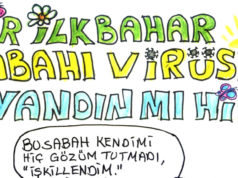 R İLKBAHAR
ABAHI VİRÜS
YANDIN MI Hİ
BU SABAH KENDİMİ
HİÇ GÖZÜM TUTMADI,
"İŞKİLLENDİM."